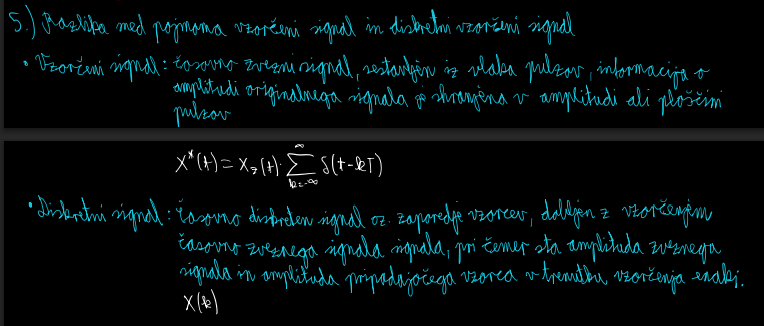 5.) Razlika med pojmoma vzorčeni signal in diskretni vzorčeni signal
• Vzorčeni signal: časovno zvezni signal, sestavljen iz vlaka pulzov, informacija o
amplitudi originalnega signala je shranjena v amplitudi ali ploščini
pulzov
X*(t) = X_z(t) · ∑_{k=-∞}^{∞} δ(t-kT)
• Diskretni signal: časovno diskreten signal oz. zaporedje vzorcev, dobljen z vzorčenjem
časovno zveznega signala signala, pri čemer sta amplituda zveznega
signala in amplituda pripadajočega vzorca v trenutku vzorčenja enaki.
X(k)